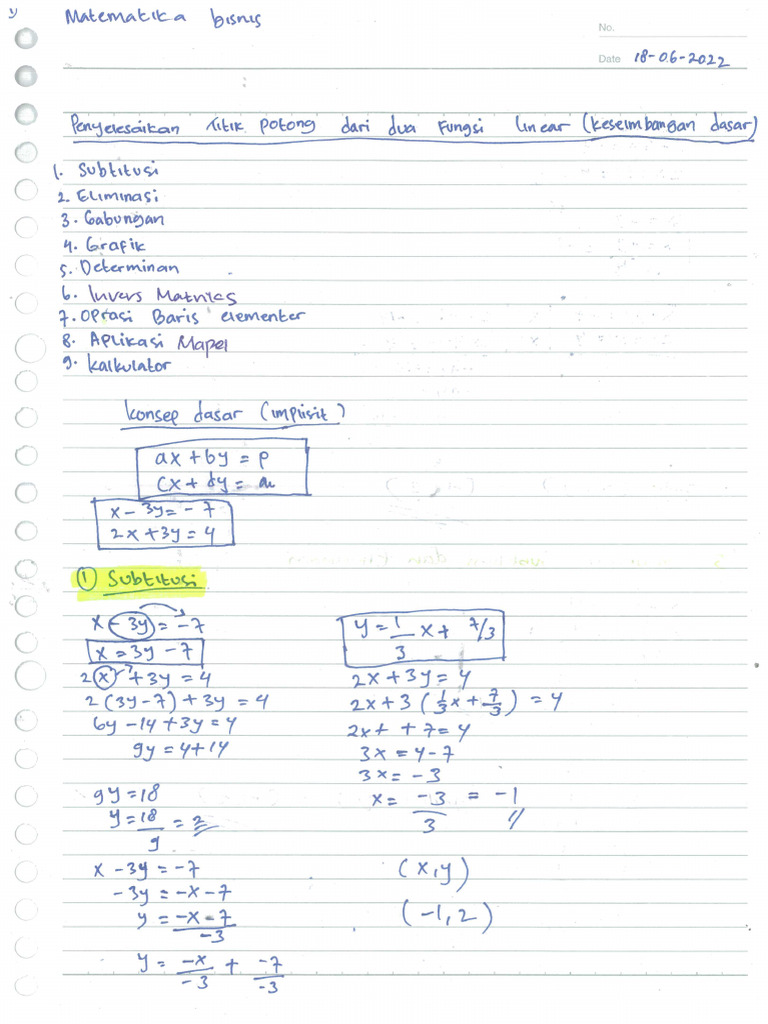 Matematika bisnis
No.
Date 18-06-2022
Penyelesaikan Titik potong dari dua Fungsi linear (keseimbangan dasar)
1. Subtitusi
2. Eliminasi
3. Gabungan
4. Grafik
5. Determinan
6. Invers Matriks
7. Oprasi Baris elementer
8. Aplikasi Mapel
9. kalkulator
konsep dasar (implisit)
ax + by = p
cx + dy =
x - 3y = -7
2x + 3y = 4
① Subtitusi
x - 3y = -7
x = 3y - 7
2x + 3y = 4
2 (3y-7) + 3y = 4
6y - 14 + 3y = 4
9y = 4+14
9y = 18
y = 18/9 = 2
x - 3y = -7
-3y = -x - 7
y = -x - 7 / -3
y = -x/-3 + -7/-3
y = 1/3 x + 7/3
2x + 3y = 4
2x + 3 (1/3x + 7/3) = 4
2x + + 7 = 4
3x = 4 - 7
3x = -3
x = -3/3 = -1
(x,y)
(-1,2)